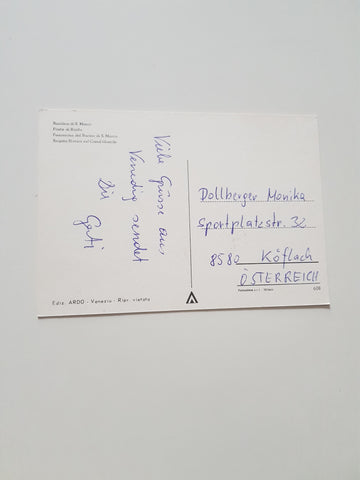 Basilica di S. Marco
Ponte di Rialto
Panorama del Bacino di S. Marco
Viele Grüsse aus
Venedig sendet
Dir
Gerti
Dollberger Monika
Sportplatzstr. 32
8580 Köflach
ÖSTERREICH
Ediz. ARDO - Venezia - Ripr. vietata
608